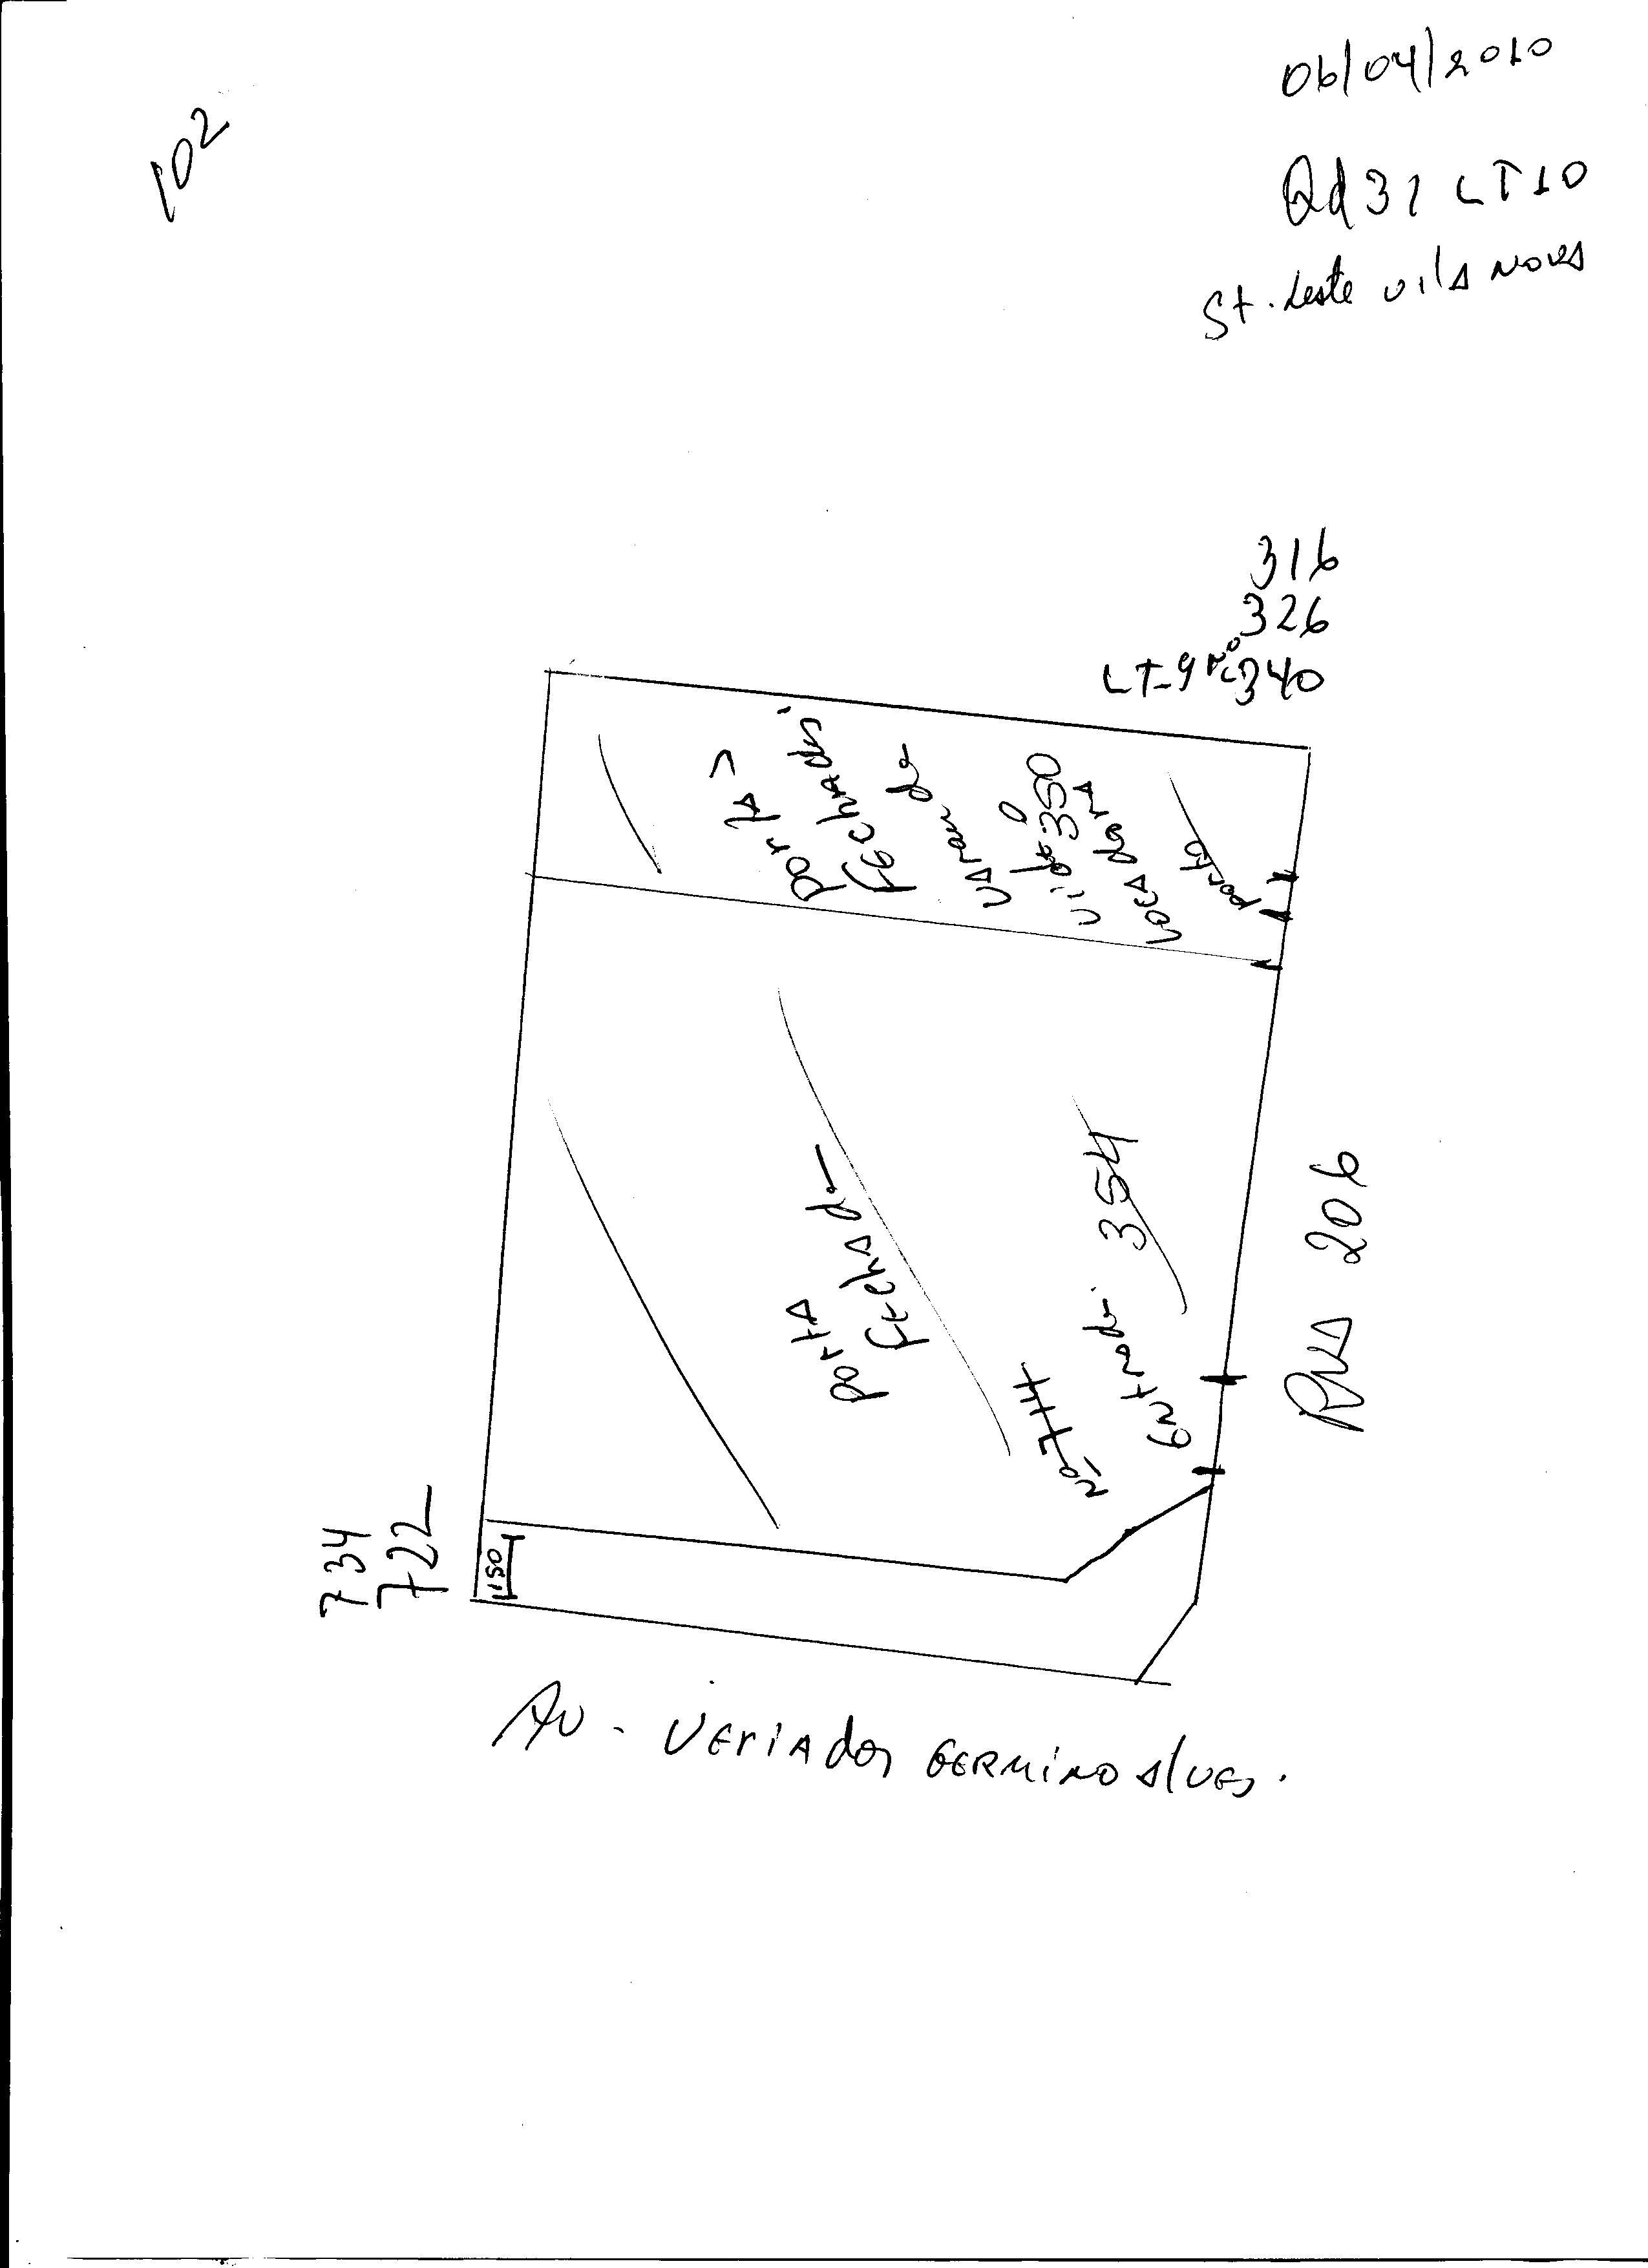 06/04/2010
102
Qd 31 LT 10
St. Leste vila Nova
316
326
LT-9 Nº 340
porta
Fechada
usando
o
350
Locadora
porta
porta
Fechado
Nº 744
Entrada 354
Rua 206
734
722
150
Av - VEriador GERMINO Alves.